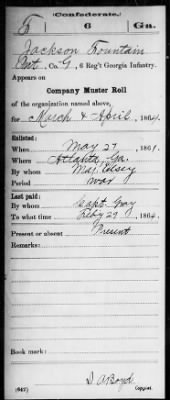 (Confederate.)
6 Ga.
Jackson Fountain
Pvt, Co. G, 6 Reg't Georgia Infantry.
Appears on
Company Muster Roll
of the organization named above,
for March & April, 1864.
Enlisted:
When May 27, 1861.
Where Atlanta, Ga.
By whom Maj.
Period war
Last paid:
By whom Capt. Gay
To what time Feby 29, 1864.
Present or absent Present
Remarks:
Book mark:
(642)
Copyist.